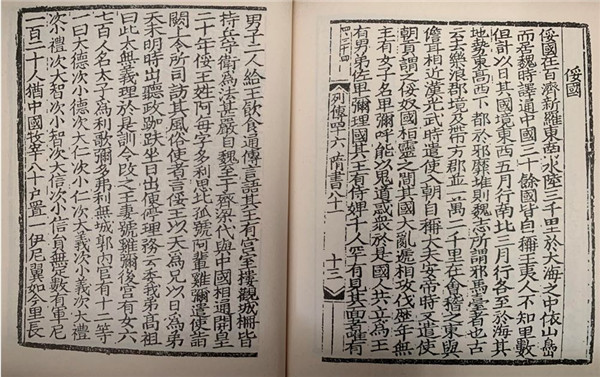 俀國
俀國在百濟新羅東南水陸三千里於大海之中依山島
而居魏時譯通中國三十餘國皆自稱王夷人不知里數
但計以日其國境東西五月行南北三月行各至於海其
地勢東高西下都於邪靡堆則魏志所謂邪馬臺者也古
云去樂浪郡境及帶方郡並一萬二千里在會稽之東與
儋耳相近漢光武時遣使入朝自稱大夫安帝時又遣使
朝貢謂之俀奴國桓靈之間其國大亂遞相攻伐歷年無
主有女子名卑彌呼能以鬼道惑衆於是國人共立為王
有男弟佐卑彌理國其王有侍婢千人罕有見其面者唯有
列傳四十六 隋書八十一 十三
男子二人給王飲食通傳言語其王有宮室樓觀城柵皆
持兵守衛為法甚嚴自魏至于齊梁代與中國相通開皇
二十年俀王姓阿每字多利思比孤號阿輩雞彌遣使詣
闕上令所司訪其風俗使者言俀王以天為兄以日為弟
天未明時出聽政跏趺坐日出便停理務云委我弟高祖
曰此太無義理於是訓令改之王妻號雞彌後宮有女六
七百人名太子為利歌彌多弗利無城郭內官有十二等
一曰大德次小德次大仁次小仁次大義次小義次大禮
次小禮次大智次小智次大信次小信員無定數有軍尼
一百二十人猶中國牧宰八十戶置一伊尼翼如今里長